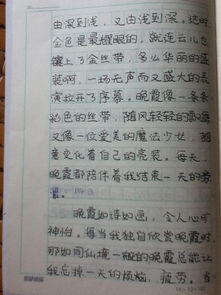 由深到浅，又由浅到深。这时
金色是最耀眼的，就连云儿也
镶上了金丝带，多么华丽的
装啊，一场无声而又盛大的表
演拉开了序幕。晚霞像一条条
彩色的丝带，随风轻轻的飘
又像一位爱美的魔法少女，随
意变化着自己的亮装。每天，
晚霞都陪伴着我结束一天的
晚霞如诗如画，令人心旷
神怡。每当我独自欣赏晚霞时，
那如同仙境一般的晚霞总能让
我忘掉一天的烦恼，疲劳。当